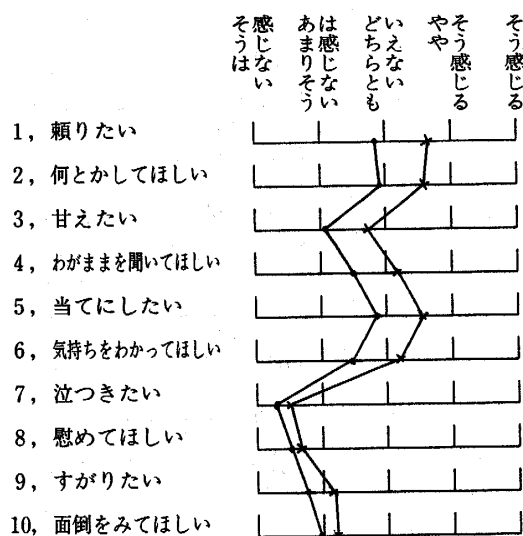 そうは
感じない
あまりそう
は感じない
どちらとも
いえない
やや
そう感じる
そう感じる
1，頼りたい
2，何とかしてほしい
3，甘えたい
4，わがままを聞いてほしい
5，当てにしたい
6，気持ちをわかってほしい
7，泣つきたい
8，慰めてほしい
9，すがりたい
10，面倒をみてほしい